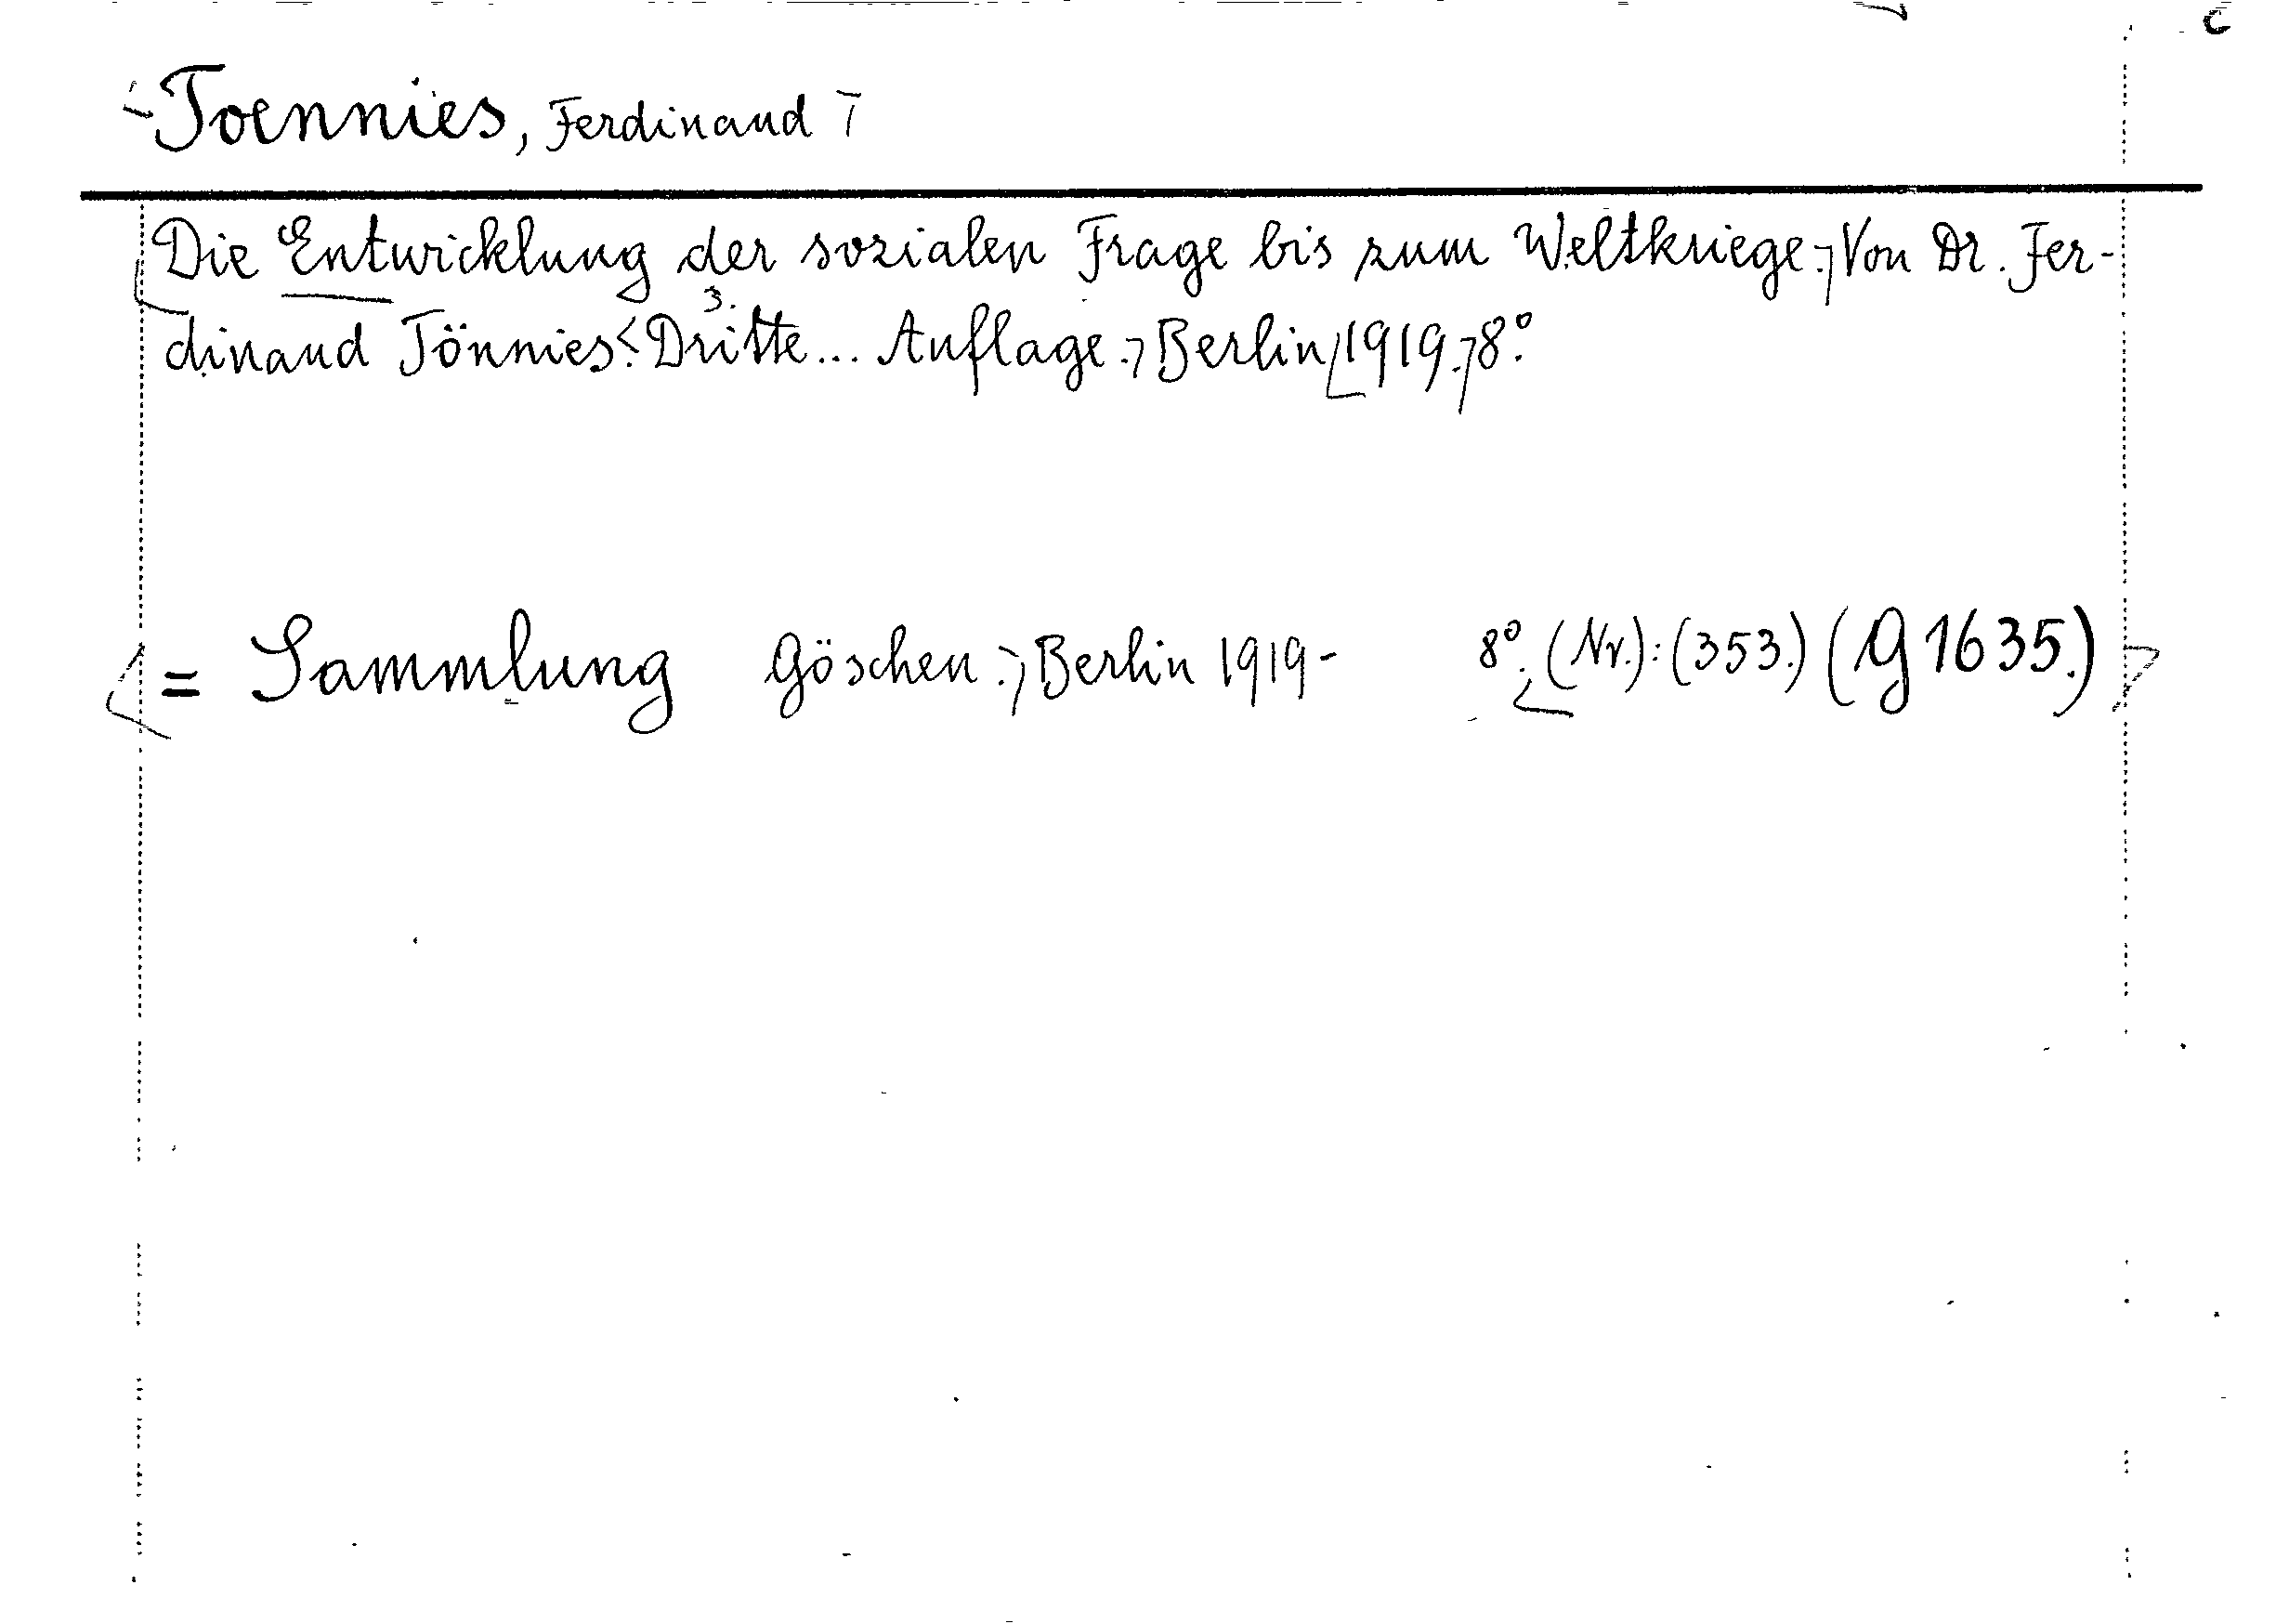 Toennies, Ferdinand
Die Entwicklung der sozialen Frage bis zum Weltkriege. Von Dr. Fer-
3.
dinand Tönnies. Dritte... Auflage. Berlin 1919. 8°.
= Sammlung Göschen. Berlin 1919- 8°. (Nr.): (353.) (G 1635.)